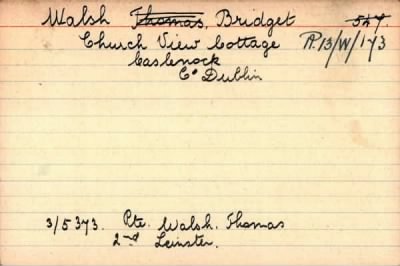 Walsh Thomas, Bridget 587.
Church View Cottage P.13/W/173
Caslenock
Co Dublin
3/5373. Pte. Walsh. Thomas
2nd Leinster.